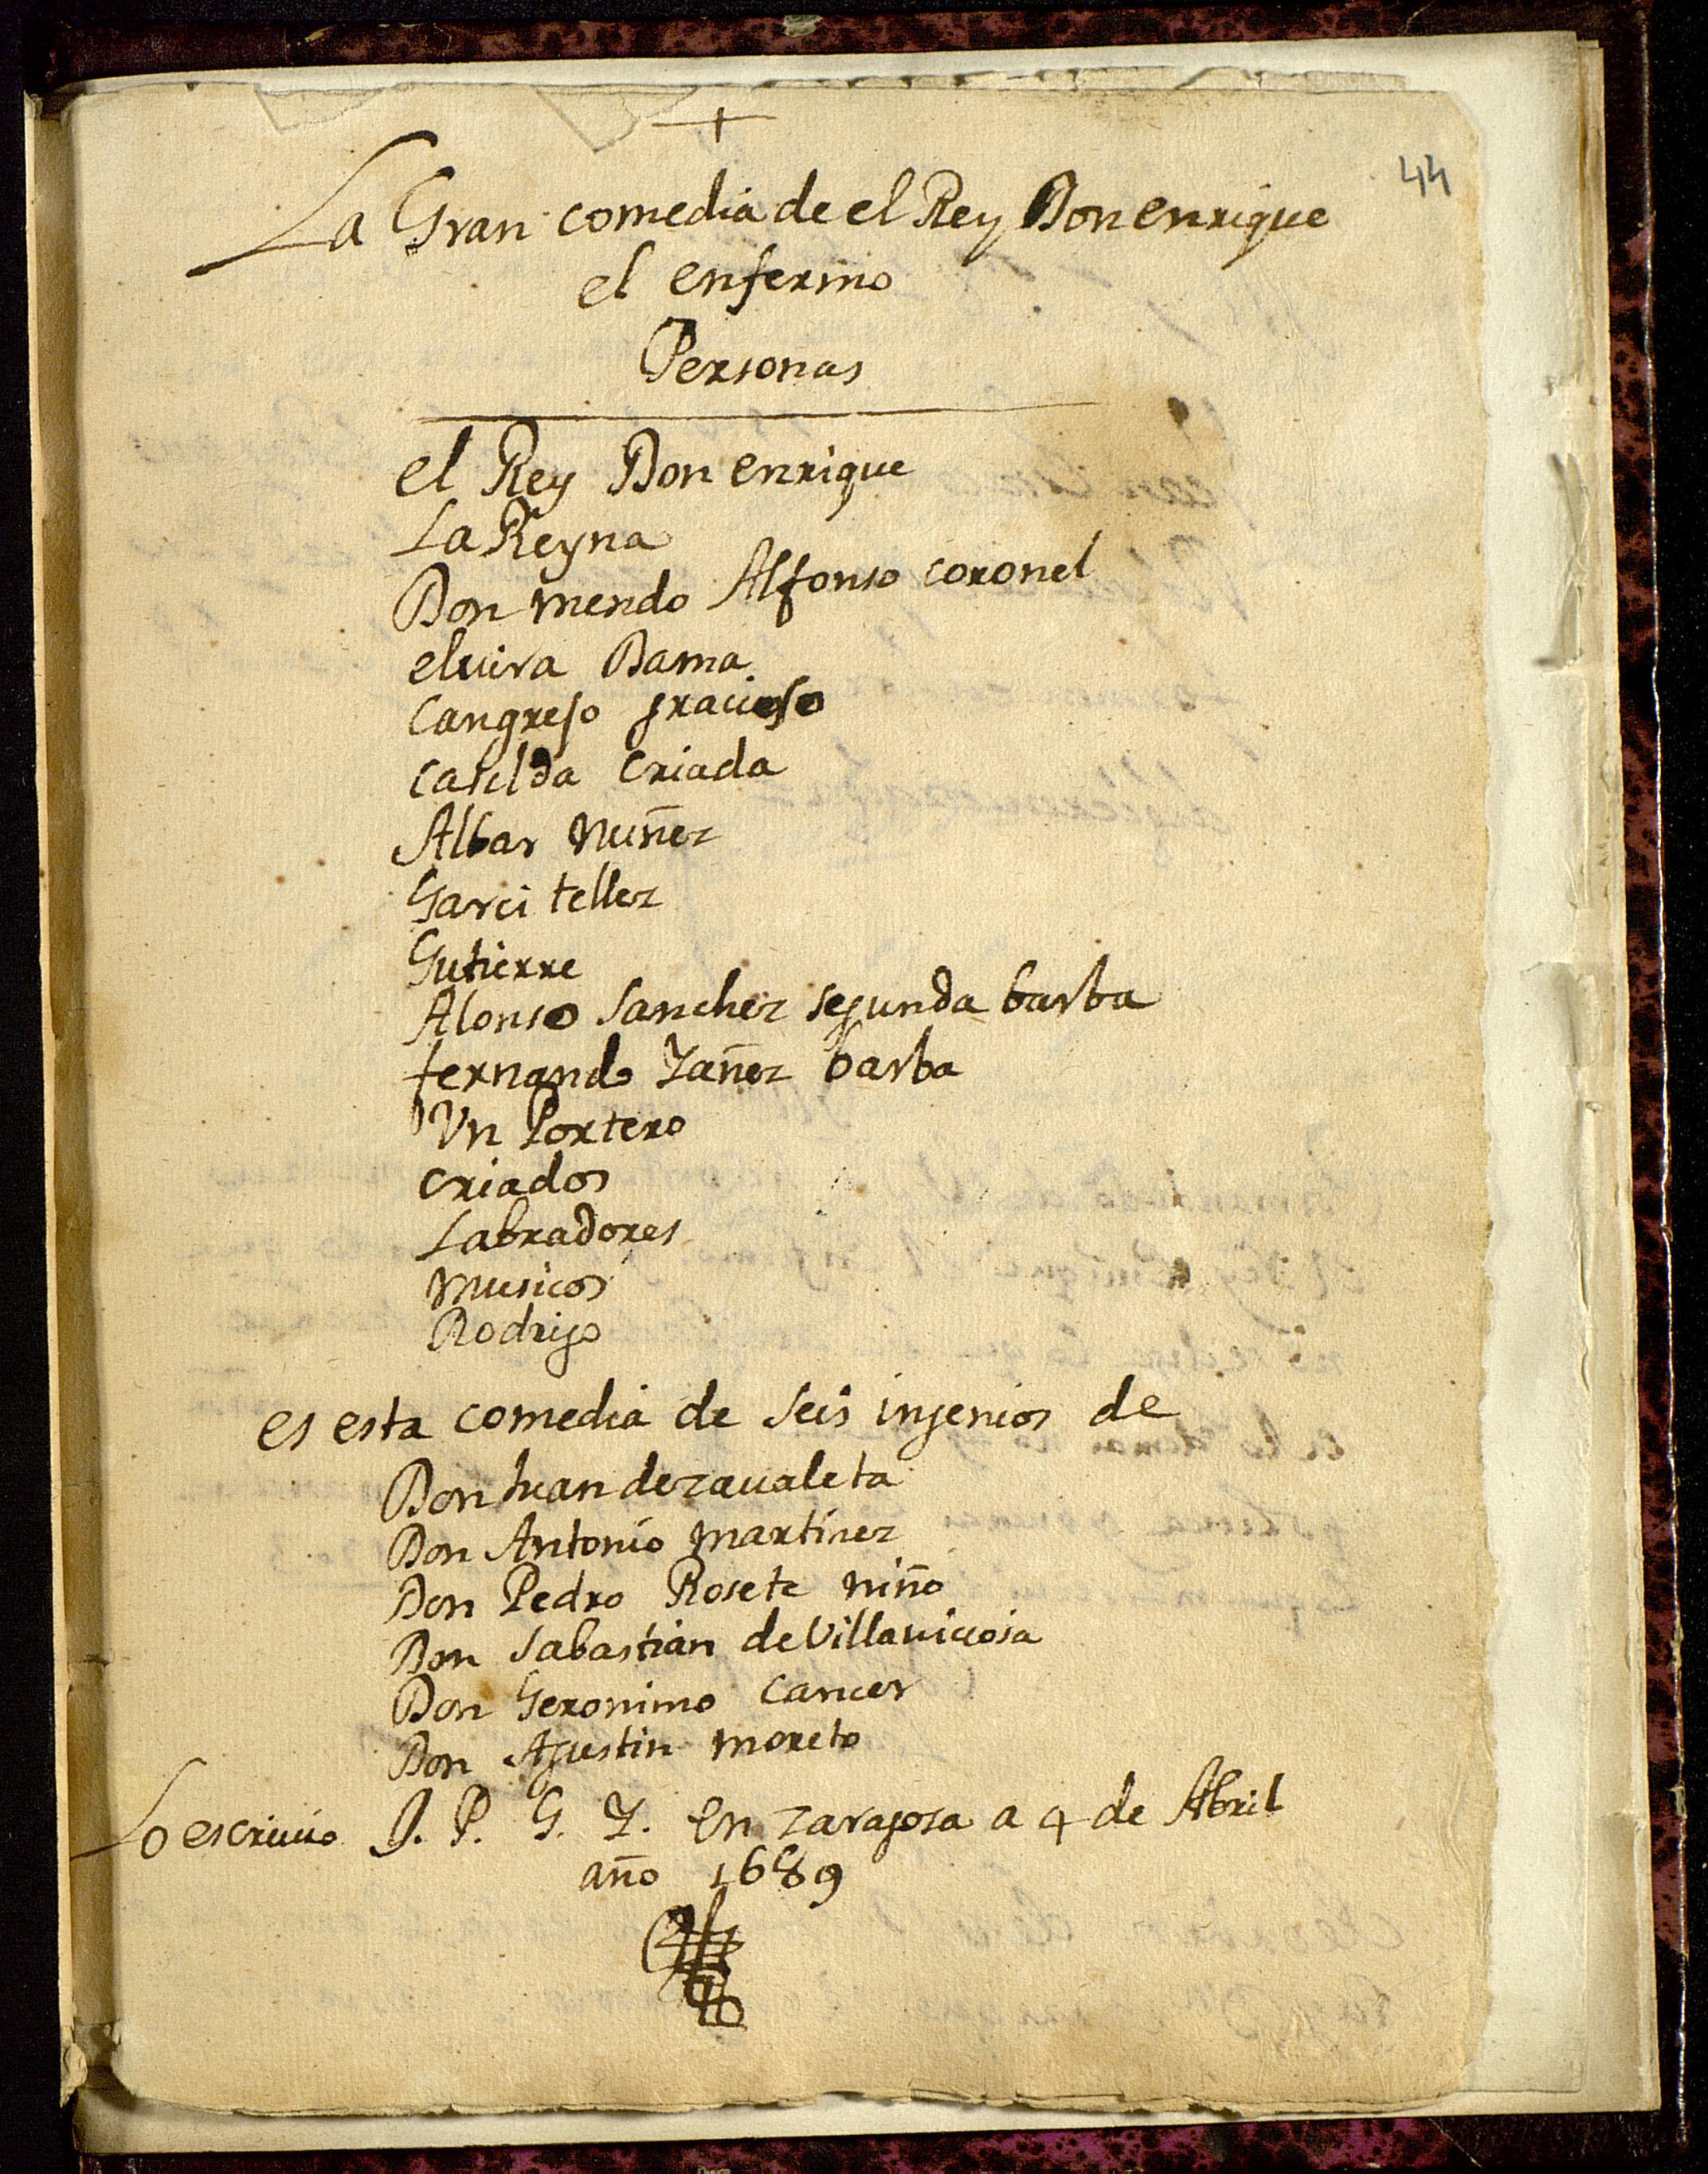 +
44
La Gran comedia de el Rey Don enrique
el enfermo
Personas
el Rey Don enrique
La Reyna
Don mendo Alfonso coronel
eluira Dama
Cangrejo gracioso
Casilda Criada
Albar nuñez
Garci tellez
Gutierre
Alonso Sanchez segunda barba
fernando Yañez barba
Vn Portero
criados
Labradores
musicos
Rodrigo
es esta comedia de seis ingenios de
Don Juan de zaualeta
Don Antonio martinez
Don Pedro Rosete niño
Don Sabastian de Villauiciosa
Don Geronimo Cancer
Don Agustin moreto
Lo escriuio J. P. G. Y. en zaragoza a 4 de Abril
año 1689